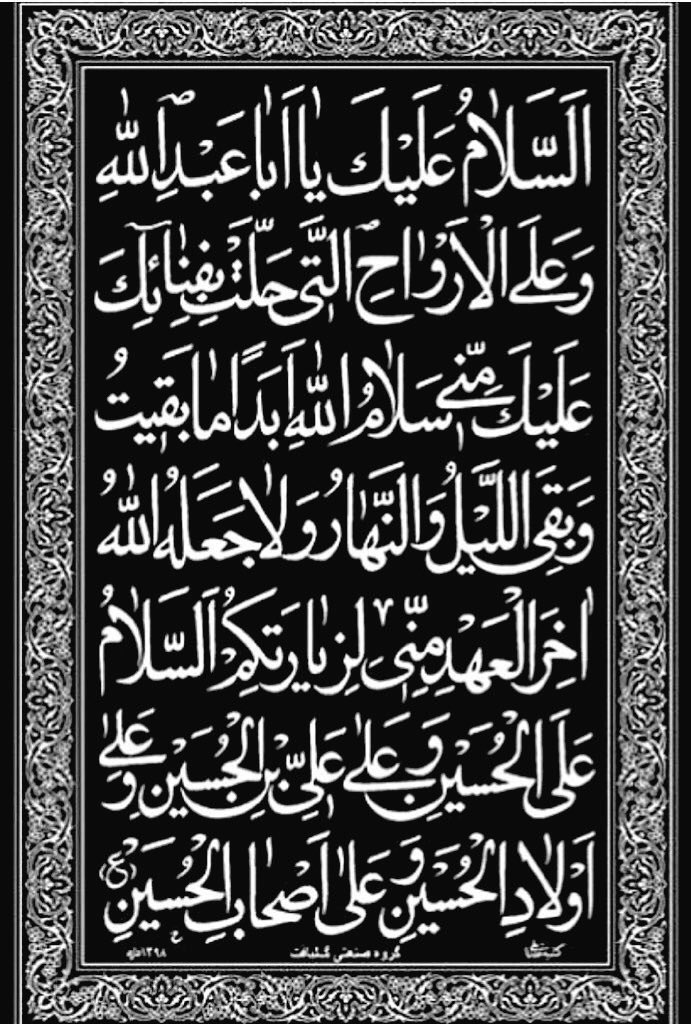 اَلسَّلَامُ عَلَيْكَ يَا اَبَا عَبْدِاللّٰهِ
وَعَلَى الْاَرْوَاحِ الَّتِي حَلَّتْ بِفِنَائِكَ
عَلَيْكَ مِنِّي سَلَامُ اللّٰهِ اَبَدًا مَا بَقِيتُ
وَبَقِيَ اللَّيْلُ وَالنَّهَارُ وَلَا جَعَلَهُ اللّٰهُ
اٰخِرَ الْعَهْدِ مِنِّي لِزِيَارَتِكُمْ اَلسَّلَامُ
عَلَى الْحُسَيْنِ وَعَلٰى عَلِيِّ بْنِ الْحُسَيْنِ وَعَلٰى
اَوْلَادِ الْحُسَيْنِ وَعَلٰى اَصْحَابِ الْحُسَيْنِ (ع)
گروه صنعتی گلبافت ۱۳۹۸